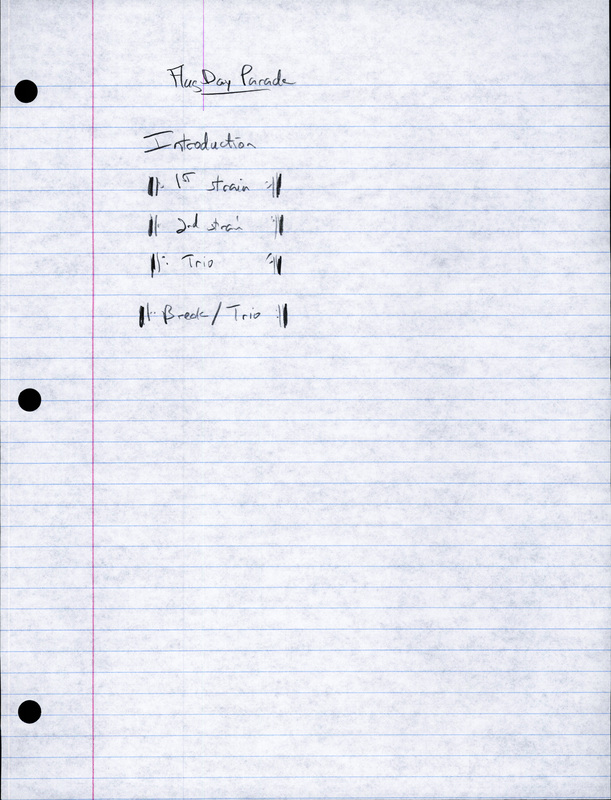 Flag Day Parade
Introduction
‖: 1st strain :‖
‖: 2nd strain :‖
‖: Trio :‖
‖: Break/Trio :‖